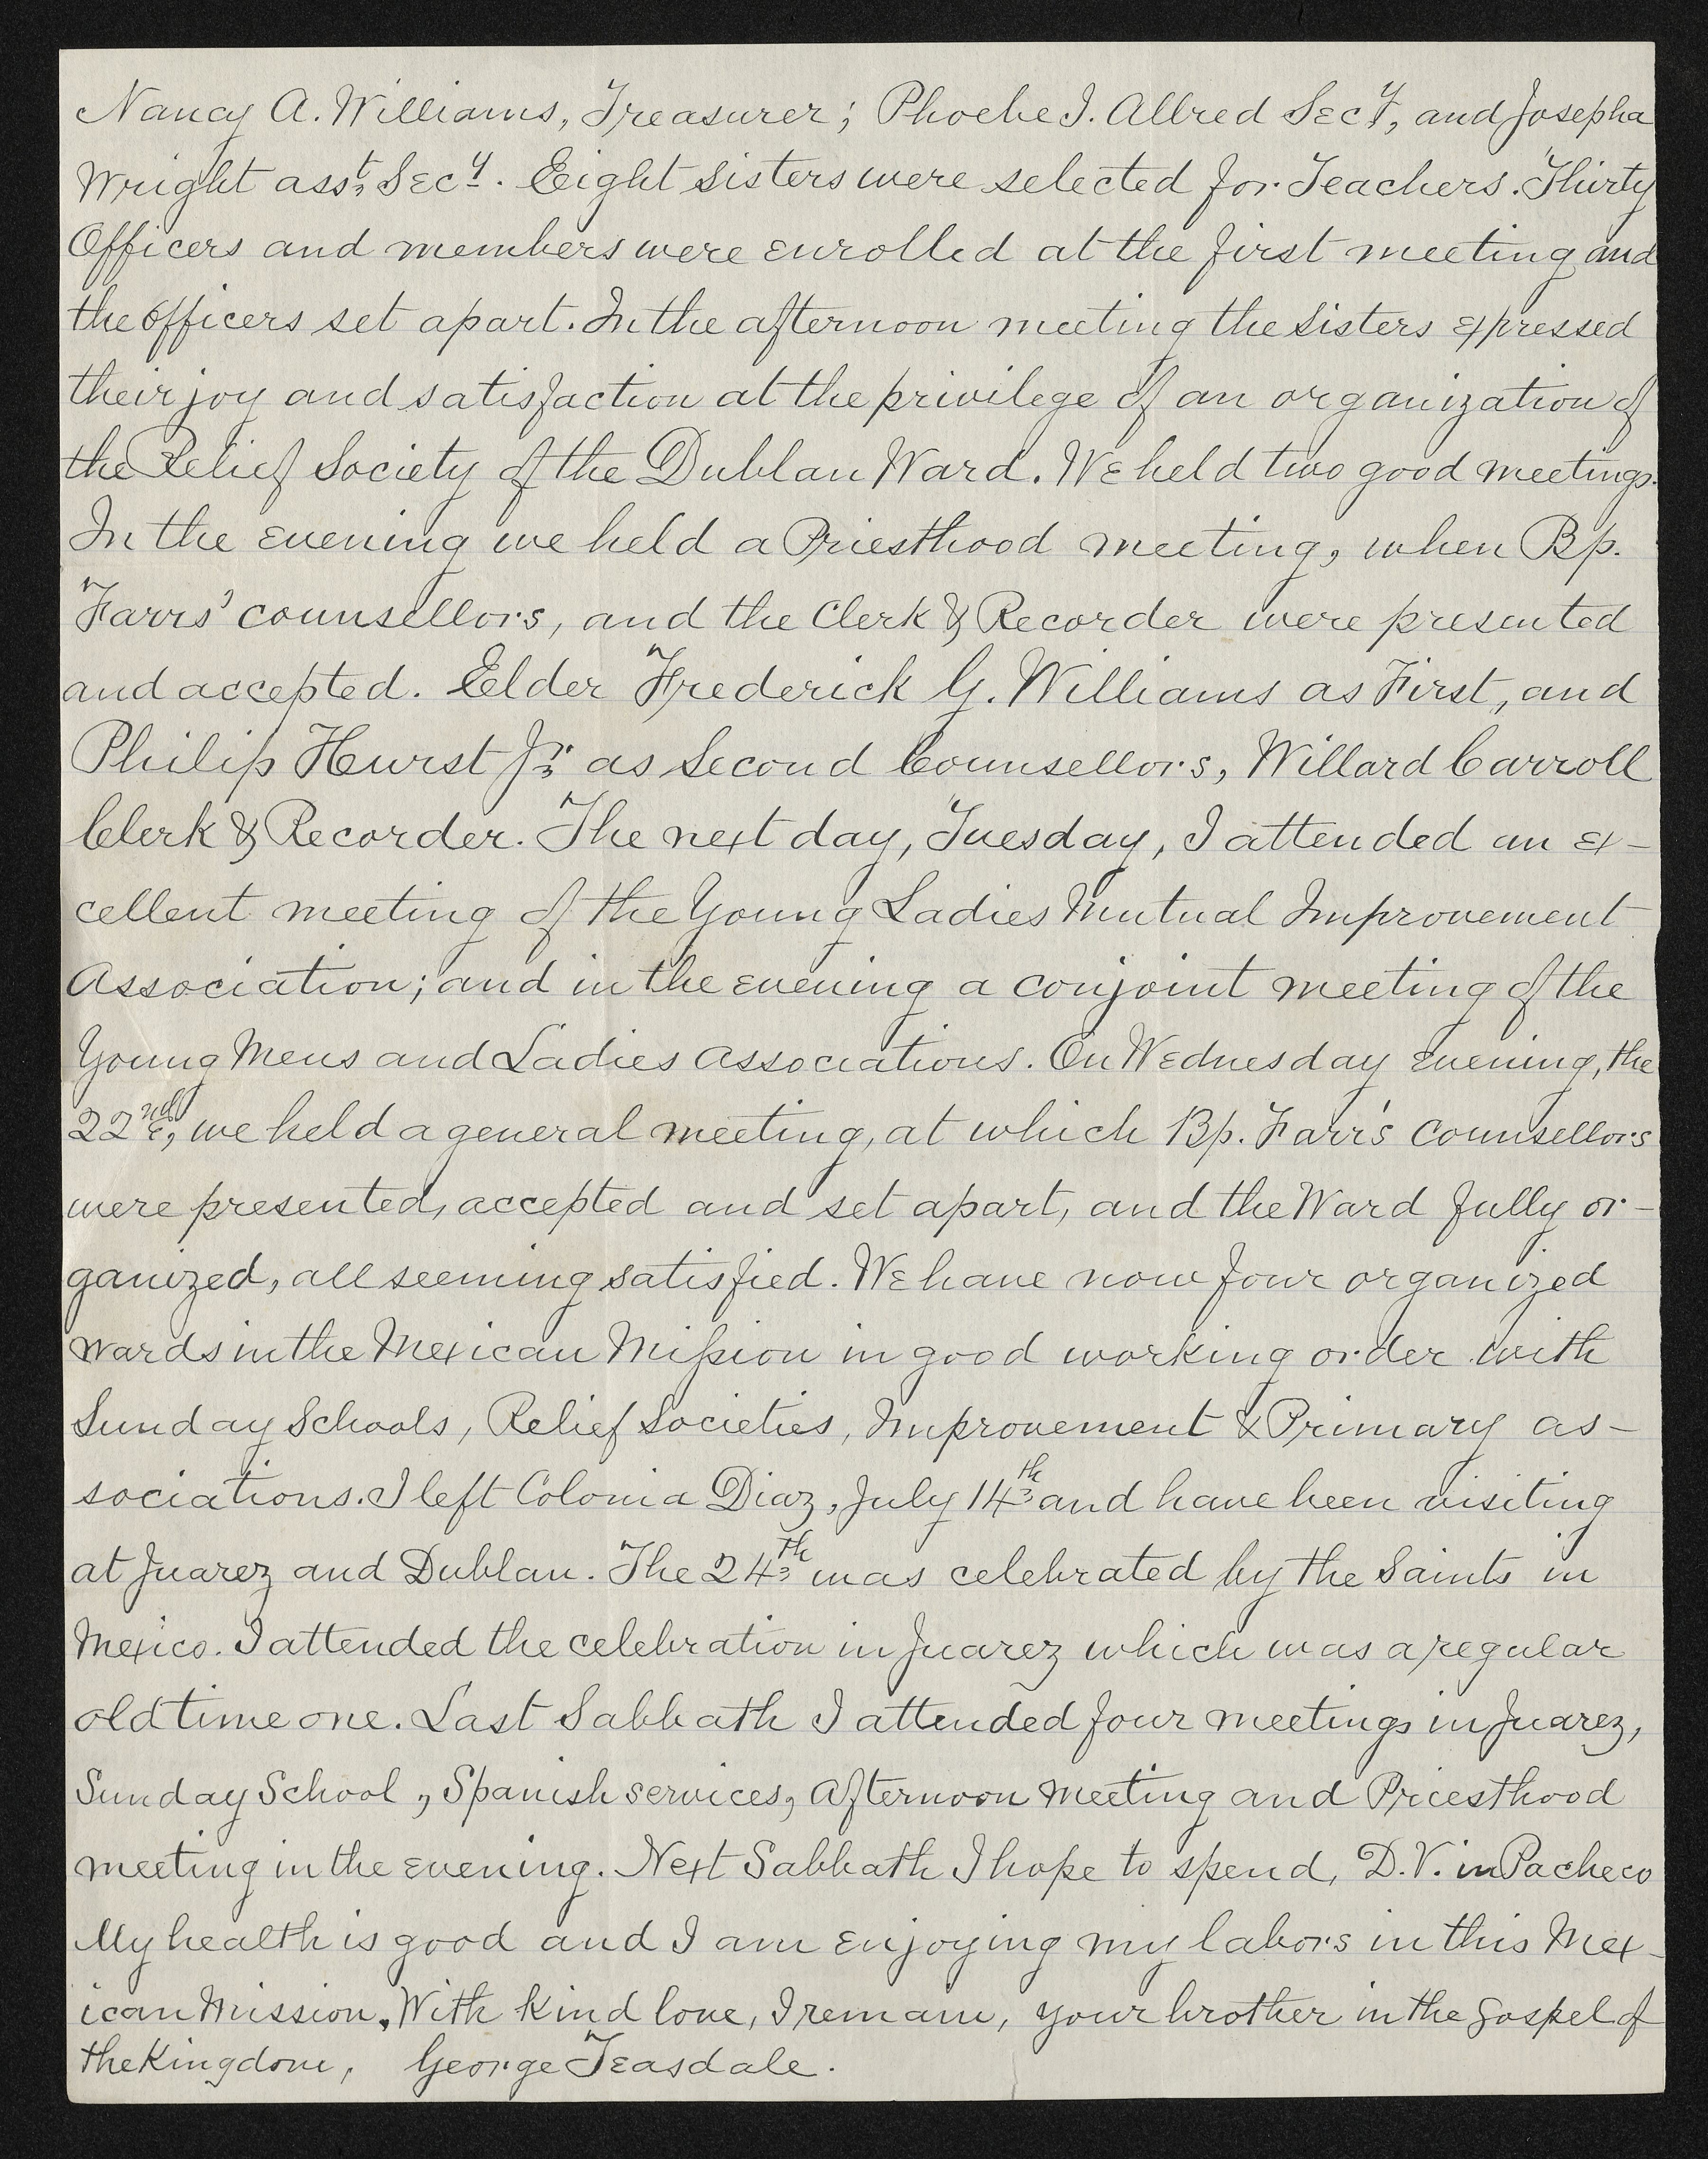 Nancy A. Williams, Treasurer; Phoebe I. Allred Secy, and Josepha
Wright asst Secy. Eight sisters were selected for Teachers. Thirty
Officers and members were enrolled at the first meeting and
the officers set apart. In the afternoon meeting the sisters expressed
their joy and satisfaction at the privilege of an organization of
the Relief Society of the Dublan Ward. We held two good meetings.
In the evening we held a Priesthood meeting, when Bp.
Farrs' counsellors, and the Clerk & Recorder were presented
and accepted. Elder Frederick G. Williams as First, and
Philip Hurst Jr. as Second Counsellors, Willard Carroll
Clerk & Recorder. The next day, Tuesday, I attended an ex-
cellent meeting of the Young Ladies Mutual Improvement
Association; and in the evening a conjoint meeting of the
Young Mens and Ladies associations. On Wednesday evening, the
22nd, we held a general meeting, at which Bp. Farr's counsellors
were presented, accepted and set apart, and the Ward fully or-
ganized, all seeming satisfied. We have now four organized
wards in the Mexican Mission in good working order with
Sunday Schools, Relief Societies, Improvement & Primary as-
sociations. I left Colonia Diaz, July 14th and have been visiting
at Juarez and Dublan. The 24th was celebrated by the Saints in
Mexico. I attended the celebration in Juarez which was a regular
old time one. Last Sabbath I attended four meetings in Juarez,
Sunday School, Spanish services, afternoon meeting and Priesthood
meeting in the evening. Next Sabbath I hope to spend, D.V. in Pacheco
My health is good and I am enjoying my labors in this Mex-
ican Mission. With kind love, I remain, your brother in the gospel of
the Kingdom, George Teasdale.